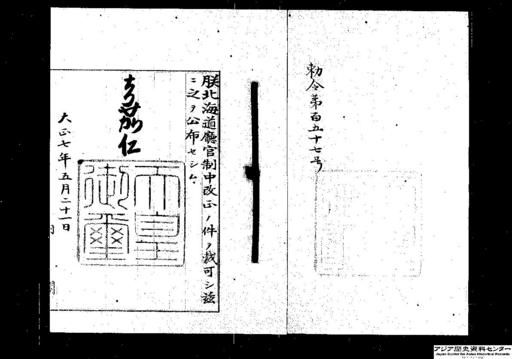 勅令第百五十七号
朕北海道廳官制中改正ノ件ヲ裁可シ玆
ニ之ヲ公布セシム
嘉仁
天皇
御璽
大正七年五月二十一日
内
閣
アジア歴史資料センター
Japan Center for Asian Historical Records